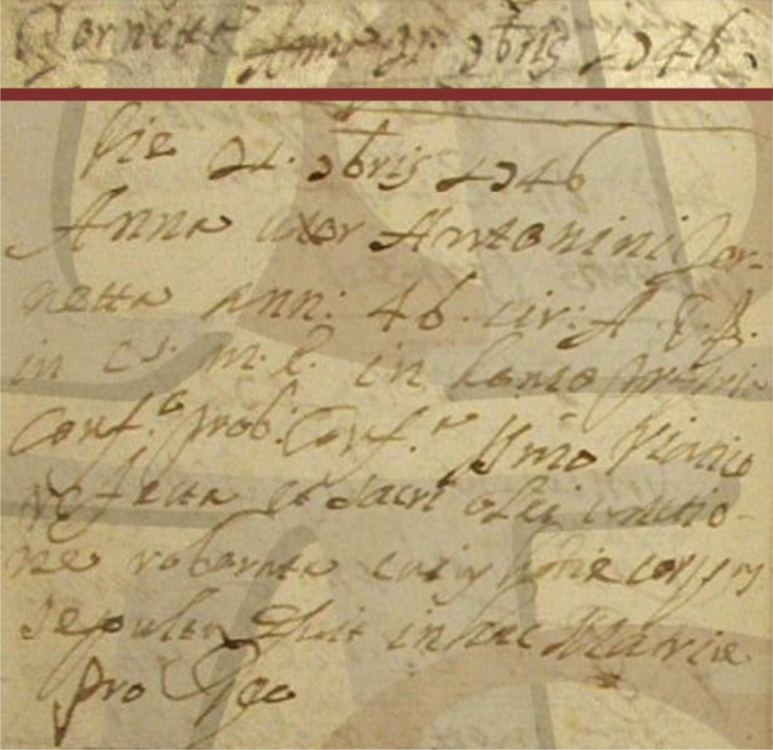 Jornetta Anna 21. 9bris 1746.
Die 21. 9bris 1746
Anna uxor Antonini Jor-
netta ann: 46. cir: A. E. R.
in C. S. M. E. in domo propria
Conf.ª prob. Conf.r SSmo Viatico
refecta et Sacri olei unctio-
ne roborata cuius hodie corpus
sepultum fuit in hac Matrice
pro Deo